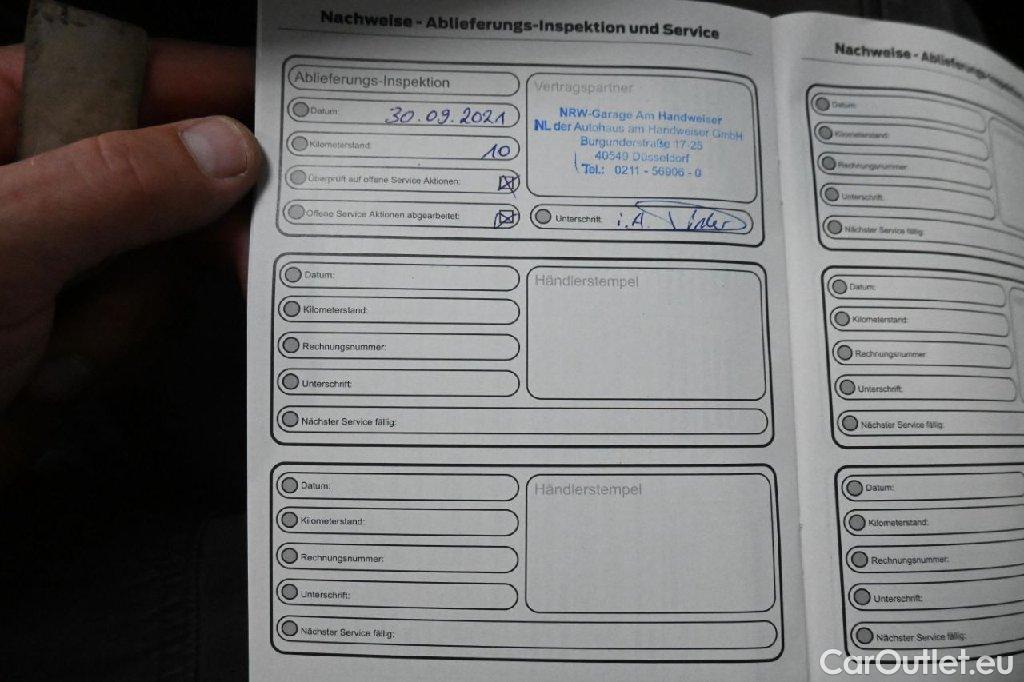 Nachweise - Ablieferungs-Inspektion und Service
Ablieferungs-Inspektion
Datum: 30.09.2021
Kilometerstand: 10
Überprüft auf offene Service Aktionen:
Offene Service Aktionen abgearbeitet:
Vertragspartner
NRW-Garage Am Handweiser
NL der Autohaus am Handweiser GmbH
Burgunderstraße 17-25
40549 Düsseldorf
Tel.: 0211 - 56906 - 0
Unterschrift: i.A.
Datum:
Kilometerstand:
Rechnungsnummer:
Unterschrift:
Nächster Service fällig:
Händlerstempel
Datum:
Kilometerstand:
Rechnungsnummer:
Unterschrift:
Nächster Service fällig:
Händlerstempel
Nachweise - Ablieferungs-
Datum:
Kilometerstand:
Rechnungsnummer
Unterschrift:
Nächster Service fällig:
Datum:
Kilometerstand:
Rechnungsnummer
Unterschrift:
Nächster Service fällig:
Datum:
Kilometerstand:
Rechnungsnummer:
Unterschrift:
Nächster Service fällig:
CarOutlet.eu